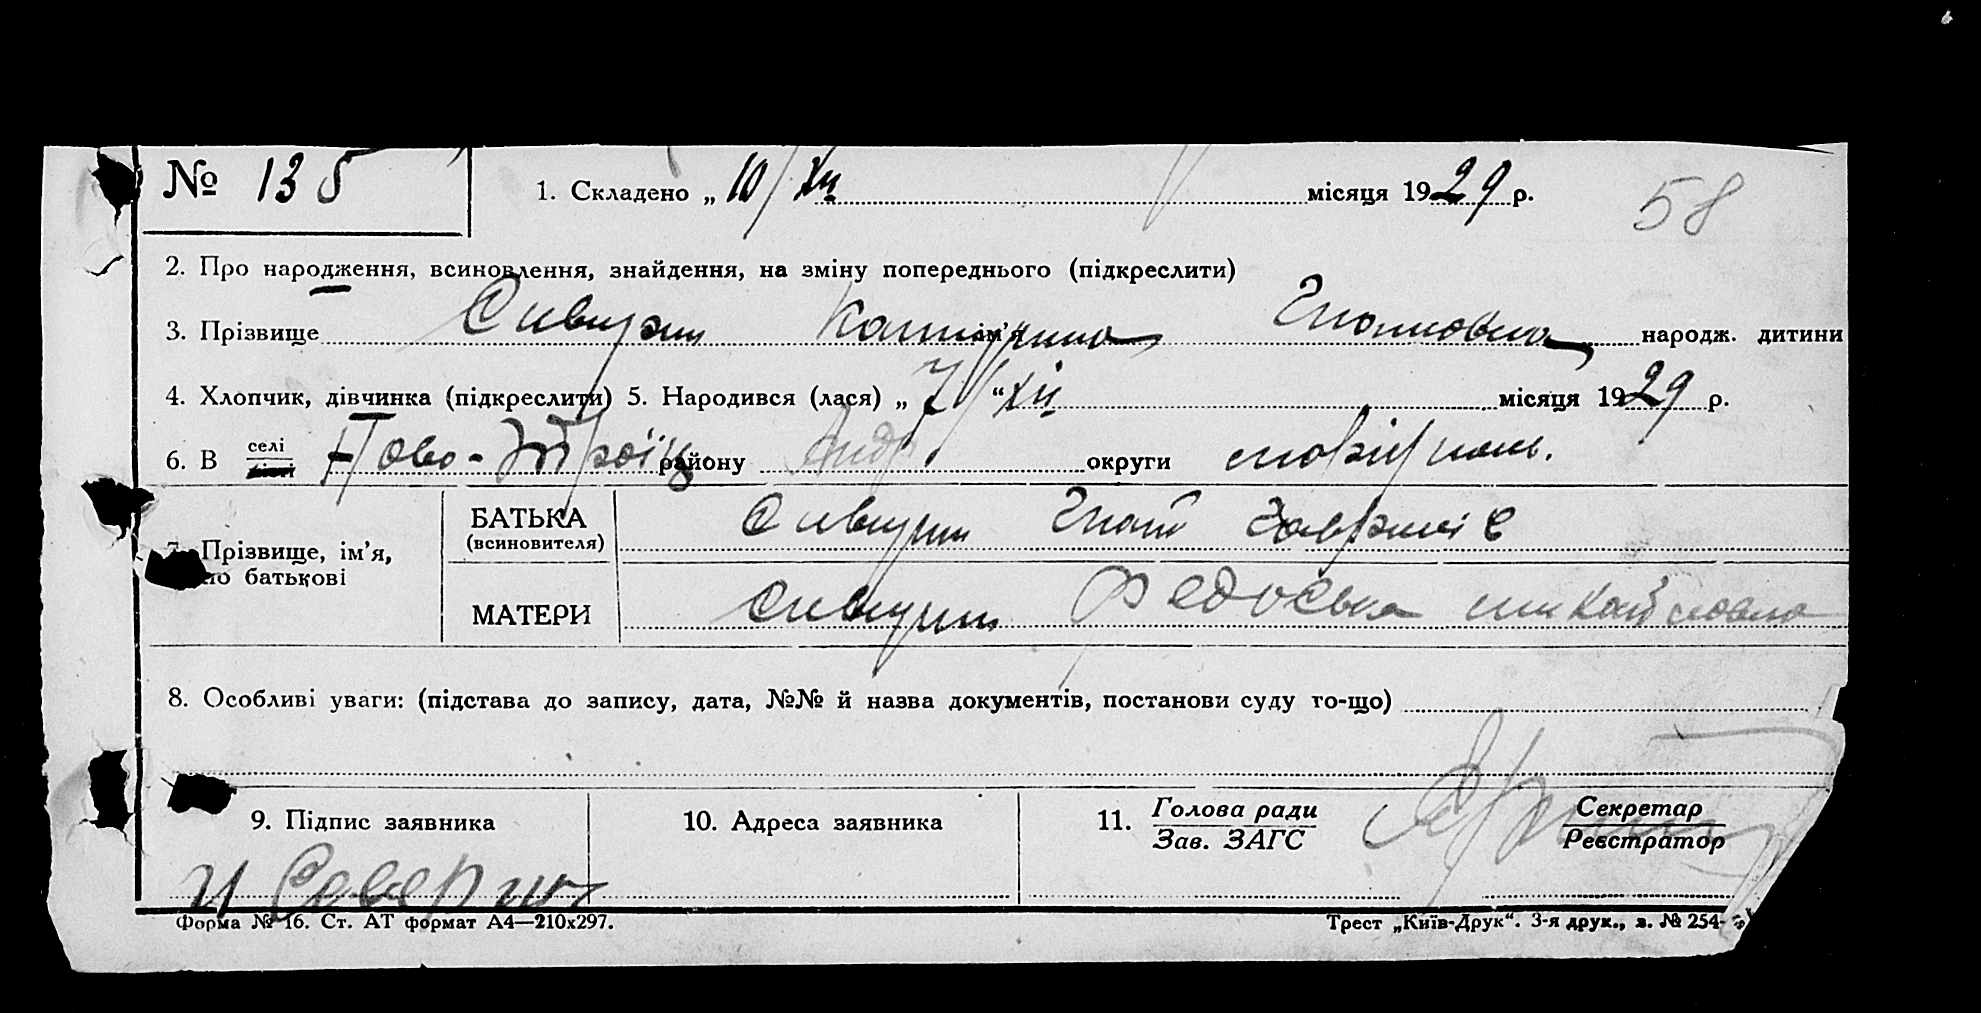 № 135
1. Складено „ 10/XII місяця 1929 р.
58
2. Про народження, всиновлення, знайдення, на зміну попереднього (підкреслити)
3. Прізвище Сивирин ім'я Катирина Гнатовна народж. дитини
4. Хлопчик, дівчинка (підкреслити) 5. Народився (лася) „ 7/ “ XII місяця 1929 р.
6. В селі Ново- району Андр округи
7. Прізвище, ім'я, по батькові
БАТЬКА (всиновителя) Сивирин Гнат
МАТЕРИ Сивирин Федоська
8. Особливі уваги: (підстава до запису, дата, №№ й назва документів, постанови суду то-що)
9. Підпис заявника
10. Адреса заявника
11. Голова ради
Зав. ЗАГС
Секретар
Реєстратор
Форма № 16. Ст. АТ формат А4—210х297.
Трест „Київ-Друк“. 3-я друк., з. № 254-